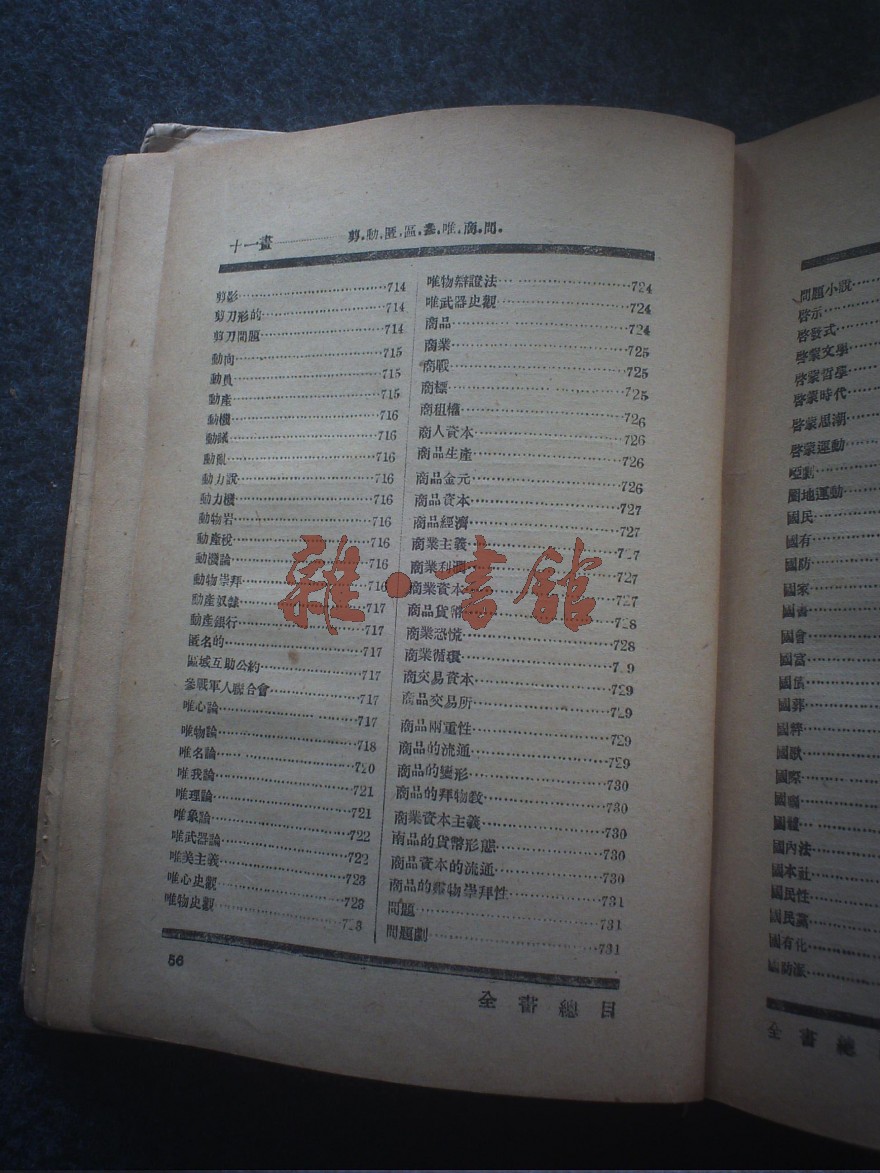 十一畫……剪.動.匿.區.參.唯.商.問.
剪影……714
剪刀形的……714
剪刀問題……714
動向……715
動員……715
動產……715
動機……716
動議……716
動亂……716
動力說……716
動力機……716
動物岩……716
動產稅……716
動機論……716
動物崇拜……716
動產奴隸……717
動產銀行……717
匿名的……717
區域互助公約……717
參戰軍人聯合會……717
唯心論……717
唯物論……718
唯名論……720
唯我論……721
唯理論……721
唯象論……722
唯武器論……722
唯美主義……723
唯心史觀……723
唯物史觀……723
唯物辯證法……724
唯武器史觀……724
商品……724
商業……725
商戰……725
商標……725
商租權……726
商人資本……726
商品生產……726
商品金元……726
商品資本……727
商品經濟……727
商業主義……727
商業利潤……727
商業資本……727
商品貨幣……728
商業恐慌……728
商業循環……729
商交易資本……729
商品交易所……729
商品兩重性……729
商品的流通……729
商品的變形……730
商品的拜物教……730
商業資本主義……730
商品的貨幣形態……730
商品資本的流通……730
商品的靈物崇拜性……731
問題……731
問題劇……731
56
全書總目
雜·書館
問題小說……
啓示……
啓發式……
啓蒙文學……
啓蒙哲學……
啓蒙時代……
啓蒙思潮……
啓蒙運動……
啞劇……
圈地運動……
國民……
國有……
國防……
國家……
國書……
國會……
國富……
國債……
國葬……
國粹……
國歌……
國際……
國體……
國內法……
國本社……
國民性……
國民黨……
國有化……
國防派……
全書總